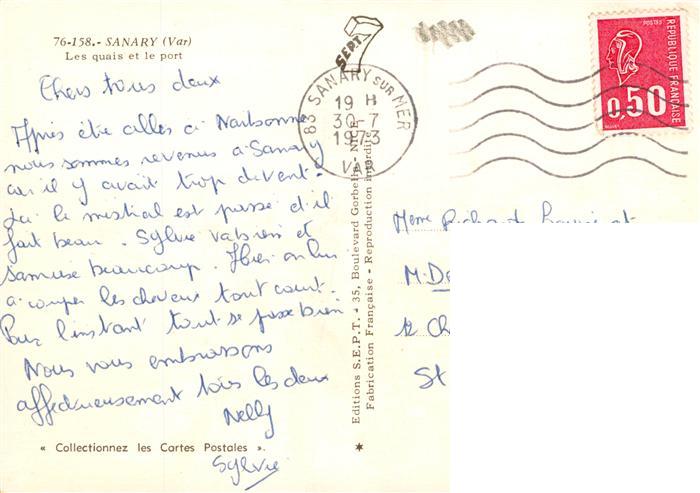 76-158.- SANARY (Var)
Les quais et le port
Chers tous deux
Après être allés à Narbonne
nous sommes revenus à Sanary
car il y avait trop de vent.
Ici le mistral est passé et il
fait beau. Sylvie va bien et
s'amuse beaucoup. Hier on lui
a couper les cheveux tout court.
Pour l'instant tout se passe bien
Nous vous embrassons
affectueusement tous les deux
Nelly
Sylvie
« Collectionnez les Cartes Postales ».
S.E.P.T. 7
83 SANARY SUR MER
19 H
30-7
1973
VAR
Editions S.E.P.T. - 35, Boulevard Gorbella - NICE
Fabrication Française - Reproduction interdite
POSTES
REPUBLIQUE FRANÇAISE
0,50
Mme Richard
M. De
12 Ch
St